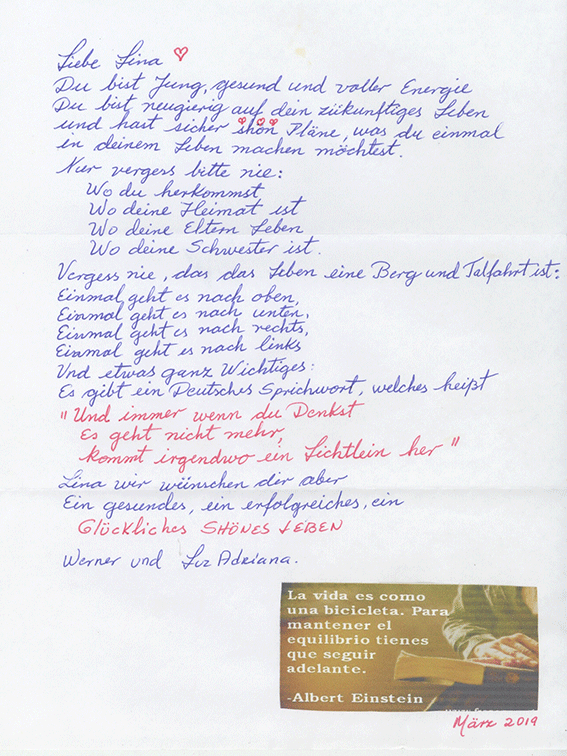 Liebe Lina
Du bist Jung, gesund und voller Energie
Du bist neugierig auf dein zükunftiges Leben
und hast sicher shön Pläne, was du einmal
in deinem Leben machen möchtest.
Nur vergess bitte nie:
Wo du herkommst
Wo deine Heimat ist
Wo deine Eltern Leben
Wo deine Schwester ist.
Vergess nie, das das Leben eine Berg und Talfahrt ist:
Einmal geht es nach oben,
Einmal geht es nach unten,
Einmal geht es nach rechts,
Einmal geht es nach links
Und etwas ganz Wichtiges:
Es gibt ein Deutsches Sprichwort, welches heißt
"Und immer wenn du Denkst
Es geht nicht mehr,
kommt irgendwo ein Lichtlein her"
Lina wir wünschen der aber
Ein gesundes, ein erfolgreiches, ein
Glückliches SHÖNES LEBEN
Werner und Luz Adriana.
La vida es como
una bicicleta. Para
mantener el
equilibrio tienes
que seguir
adelante.
-Albert Einstein
März 2019